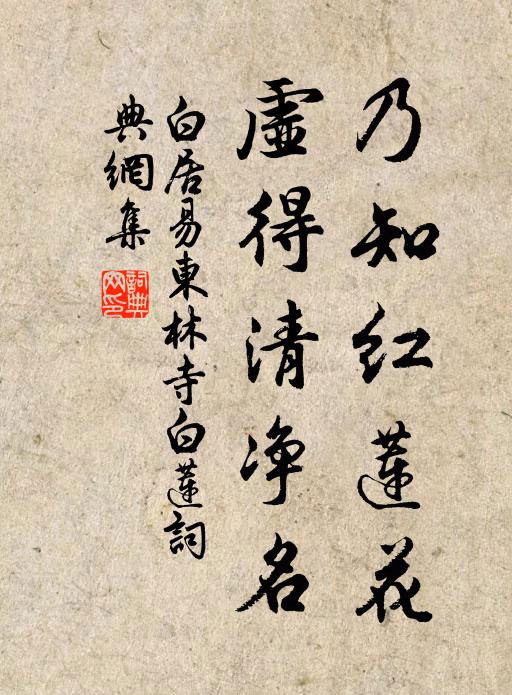 乃知红蓮花
虛得清净名
白居易東林寺白蓮詞
典網集
詞典
网印